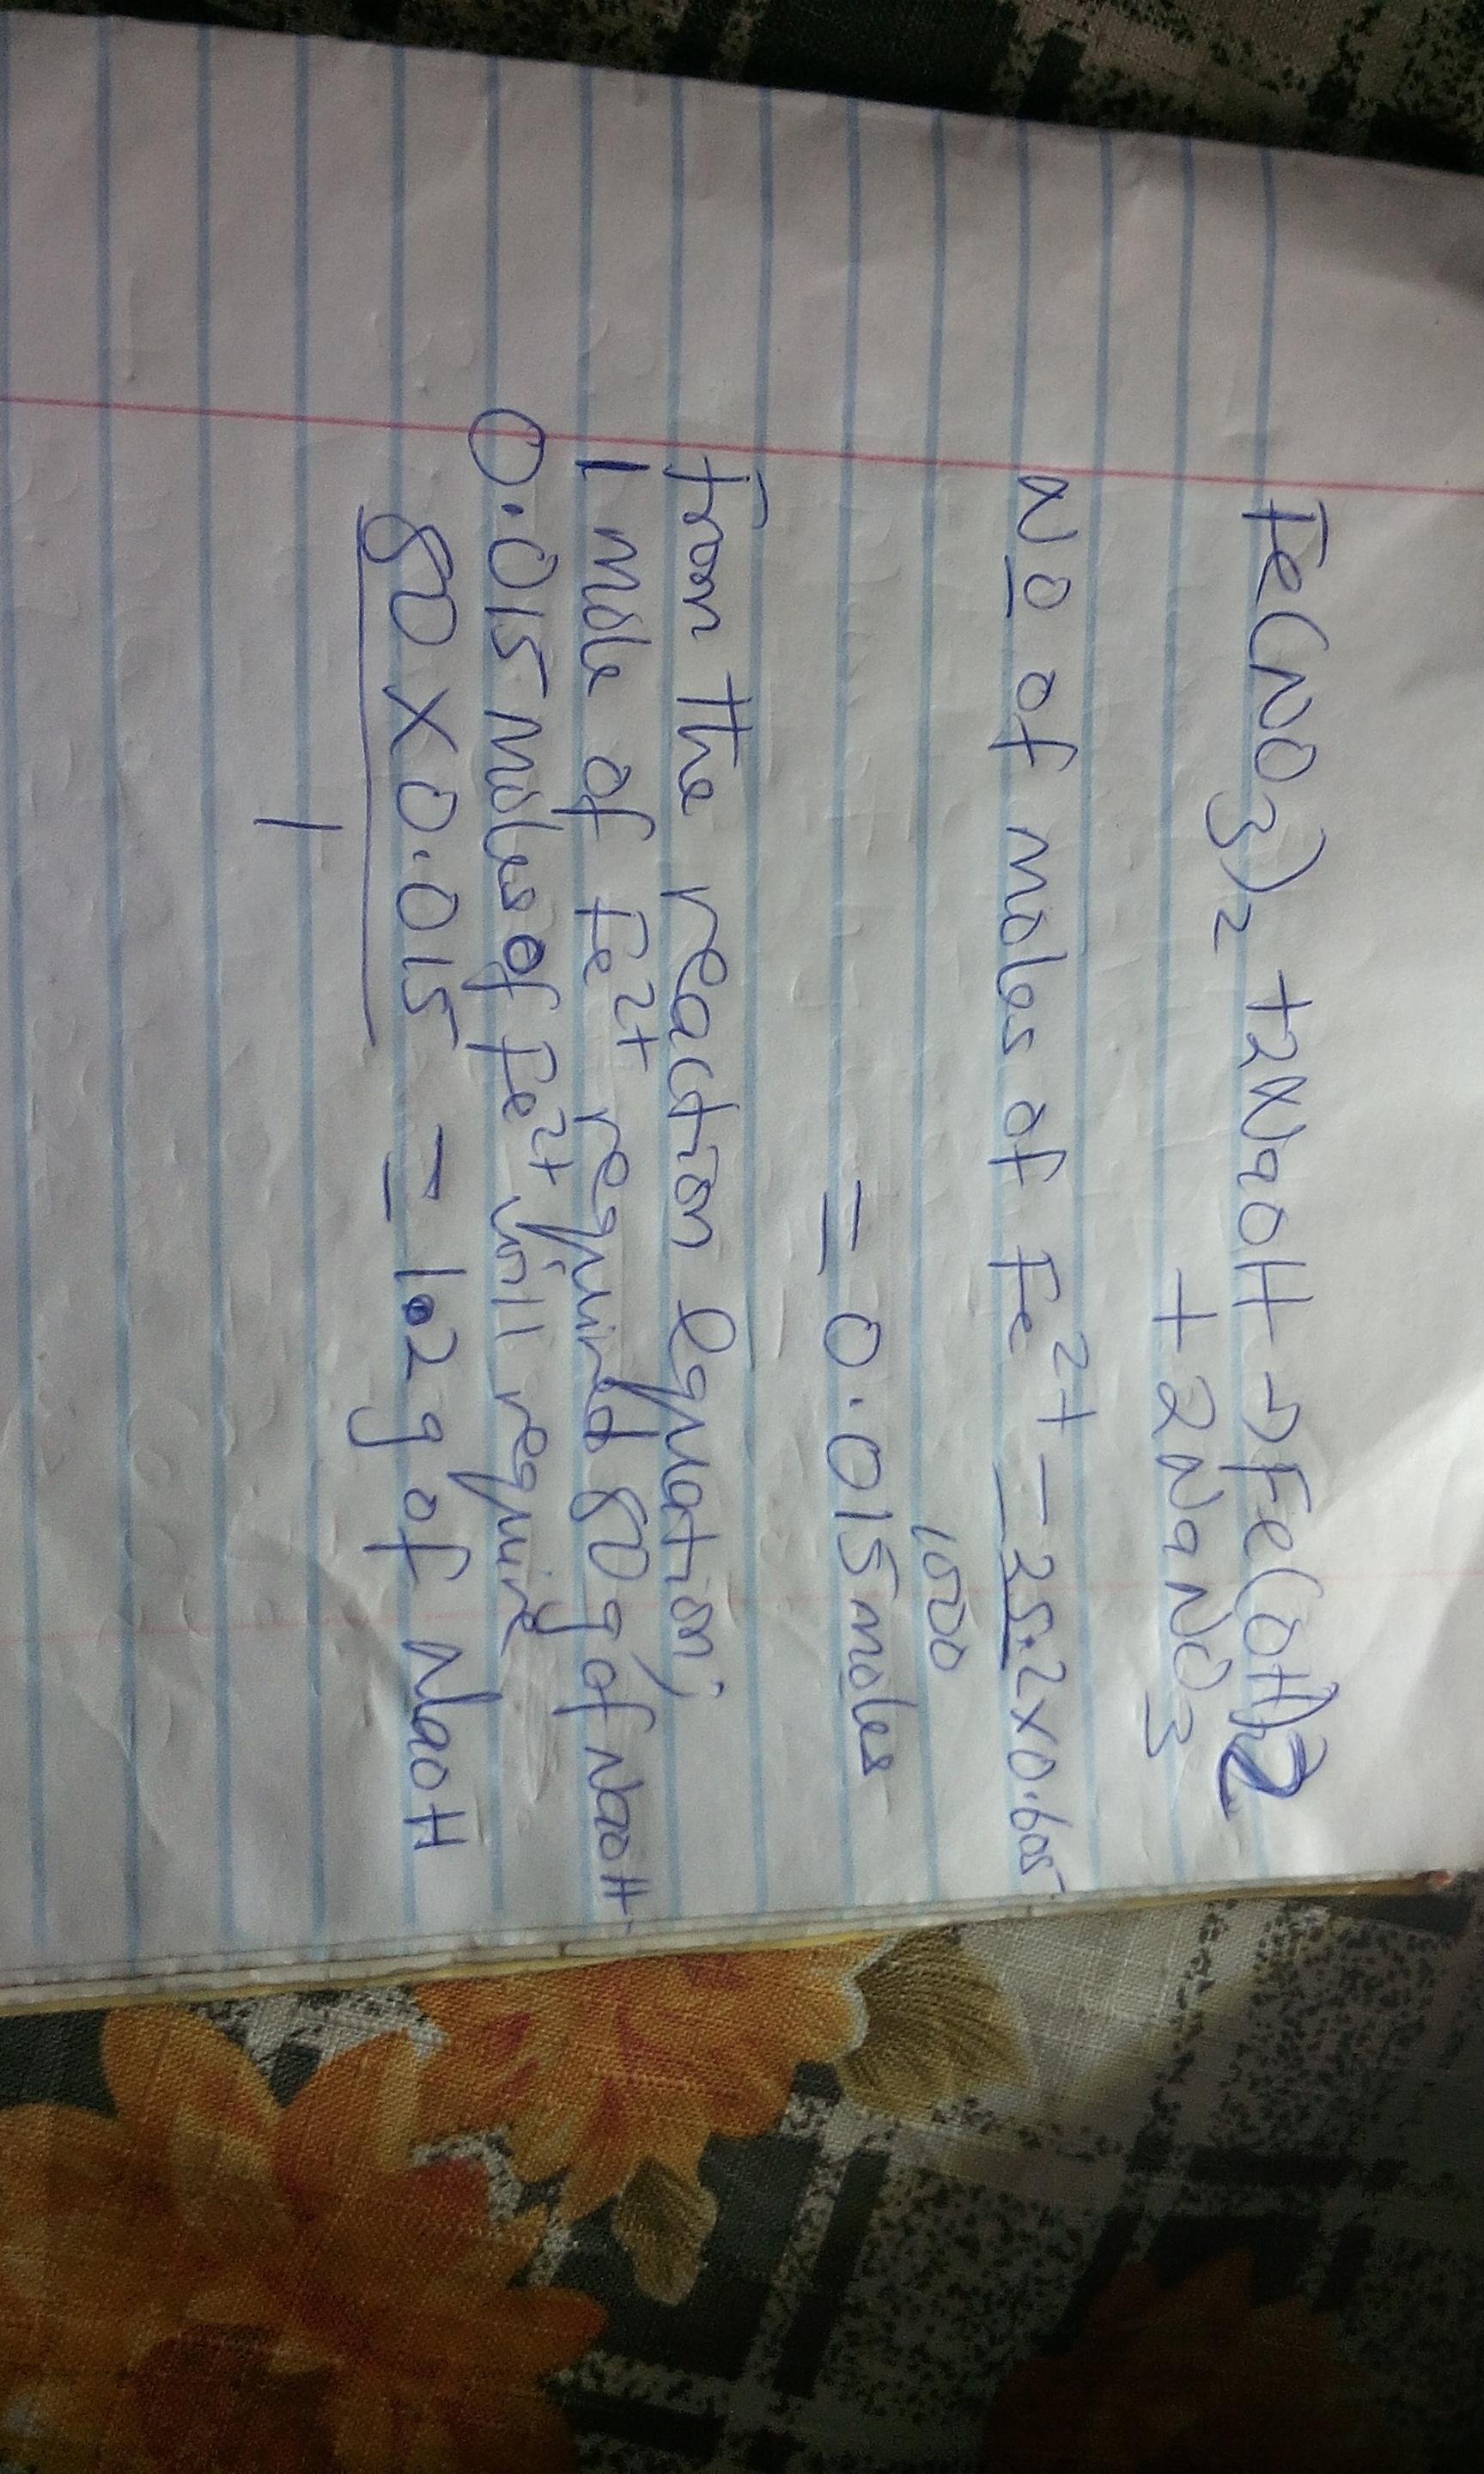 Fe(NO3)2 + 2NaOH → Fe(OH)2
+ 2NaNO3
No of moles of Fe2+ = 25.2 x 0.605
1000
= 0.015 moles
from the reaction equation;
1 mole of Fe2+ required 80g of NaOH
0.015 moles of Fe2+ will require
80 x 0.015 = 1.2g of NaOH
1